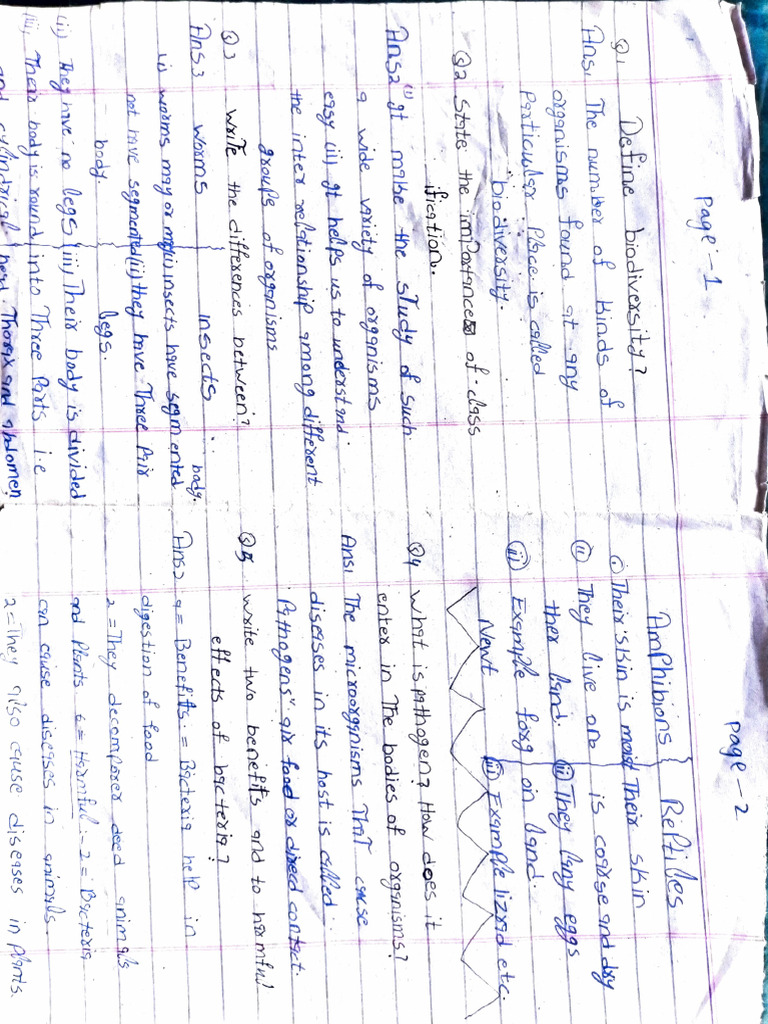 Page:-1
Q1 Define biodiversity?
Ans1 The number of kinds of
organisms found at any
Particular Place is called
biodiversity.
Q2 State the importance of class
ification.
Ans2 (i) It make the study of such
a wide variety of organisms
easy (ii) It helps us to understand
the inter relationship among different
groups of organisms
Q3 write the differences between?
Ans3 worms insects
(i) worms may or may (i) insects have segmented body.
not have segmented (ii) they have Three Pair
body. legs.
(ii) They have no legs (iii) Their body is divided
(iii) Their body is round into Three Parts i.e
and cylindrical head. Thorax and abdomen
Page-2
Amphibions Reptiles
Their skin is moist Their skin
(ii) They live on is coarse and dry
ther land. (ii) They lany eggs
(iii) Example forg on land.
Newt (iii) Example lizrad etc.
Q4 what is pathogen? How does it
enter in The bodies of organisms?
Ans1 The microorganisms That cause
diseases in its host is called
Pathogens" air food or direed contact.
Q5 write two benefits and to harmful
effects of bacteria?
Ans2 a = Benefits. = Bacteria help in
digestion of food
2 = They decomporer deed animals
and Plants 6 = Harmful :- 2 = Bacteria
can cause diseases in animals.
2 = They also cause diseases in plants.